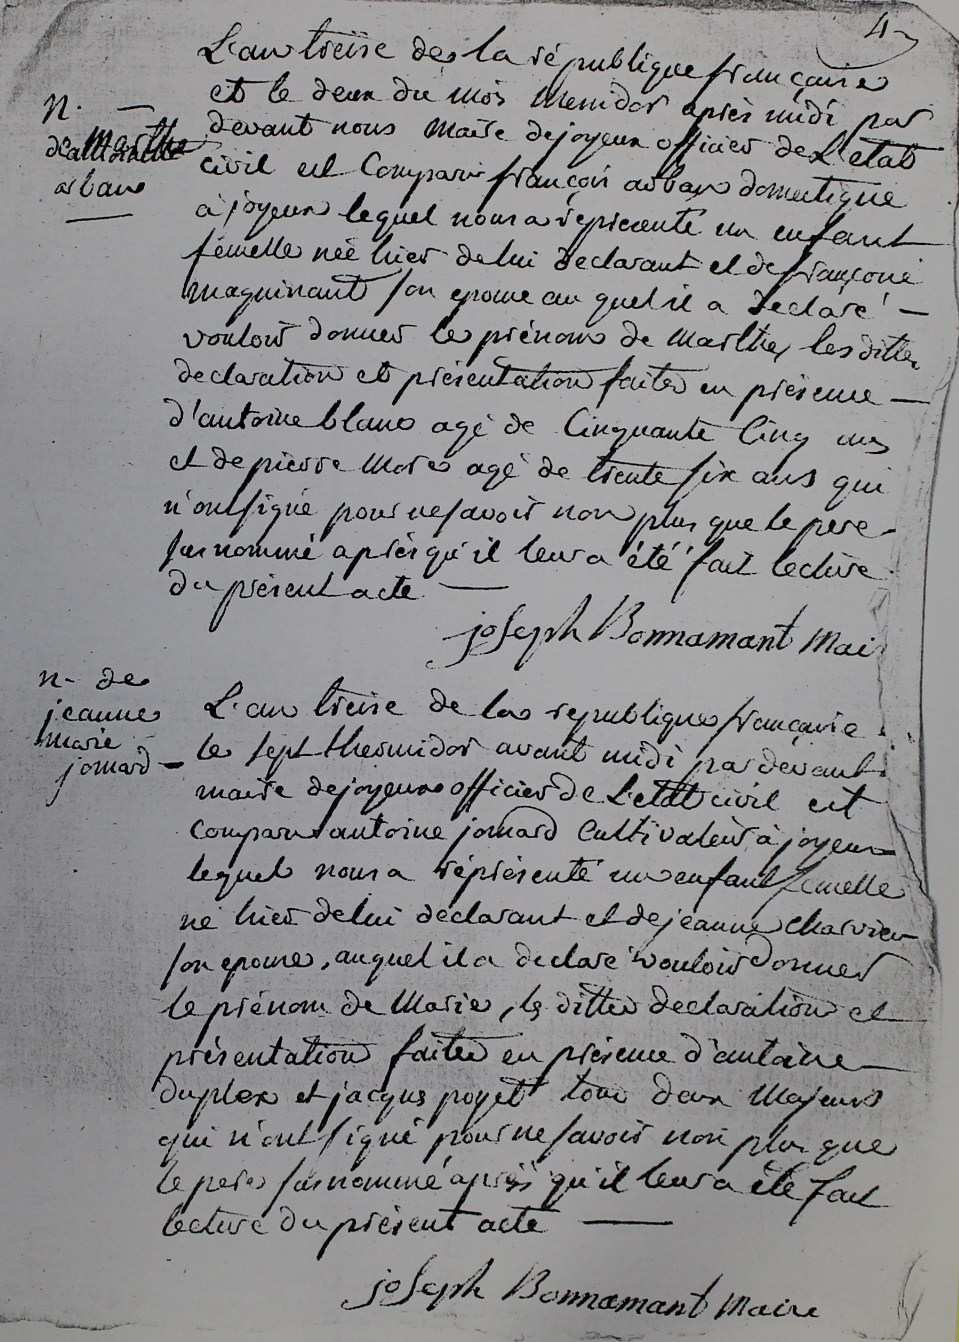 4
N. —
de Marthe
arban
L'an treise de la république françaine
et le deux du mois Mesidor après midi par
devant nous Maire de joyeux officier de L'etat
civil est Comparu françois arban domestique
à joyeux lequel nous a réprésenté un enfant
fémelle née hier de lui déclarant et de françoise
maguinant son epouse au quel il a déclaré —
vouloir donner le prénom de Marthe, les dittes
declaration et présentation faites en présence —
d'antoine blanc agé de Cinquante Cinq ans
et de pierre More agé de trente six ans qui
n'ont signé pour ne savoir non plus que le pere
sus nommé après qu'il leur a été fait lecture
du présent acte —
joseph Bonnamant Mai
n. de
jeanne
marie
jomard —
L'an treise de la république françaire
le sept thermidor avant midi par devant
maire de joyeux officier de L'etat civil est
comparu antoine jomard Cultivateur à joyeux
lequel nous a réprésenté un enfant femelle
né hier de lui declarant et de jeanne Charvieu
son epouse, auquel il a declaré vouloir donner
le prénom de Marie, les dittes declaration et
présentation faites en présence d'antoine —
duplex et jacques poyet tous deux Majeurs
qui n'ont signé pour ne savoir non plus que
le pere sus nommé après qu'il leur a été fait
lecture du présent acte —
joseph Bonnamant Maire